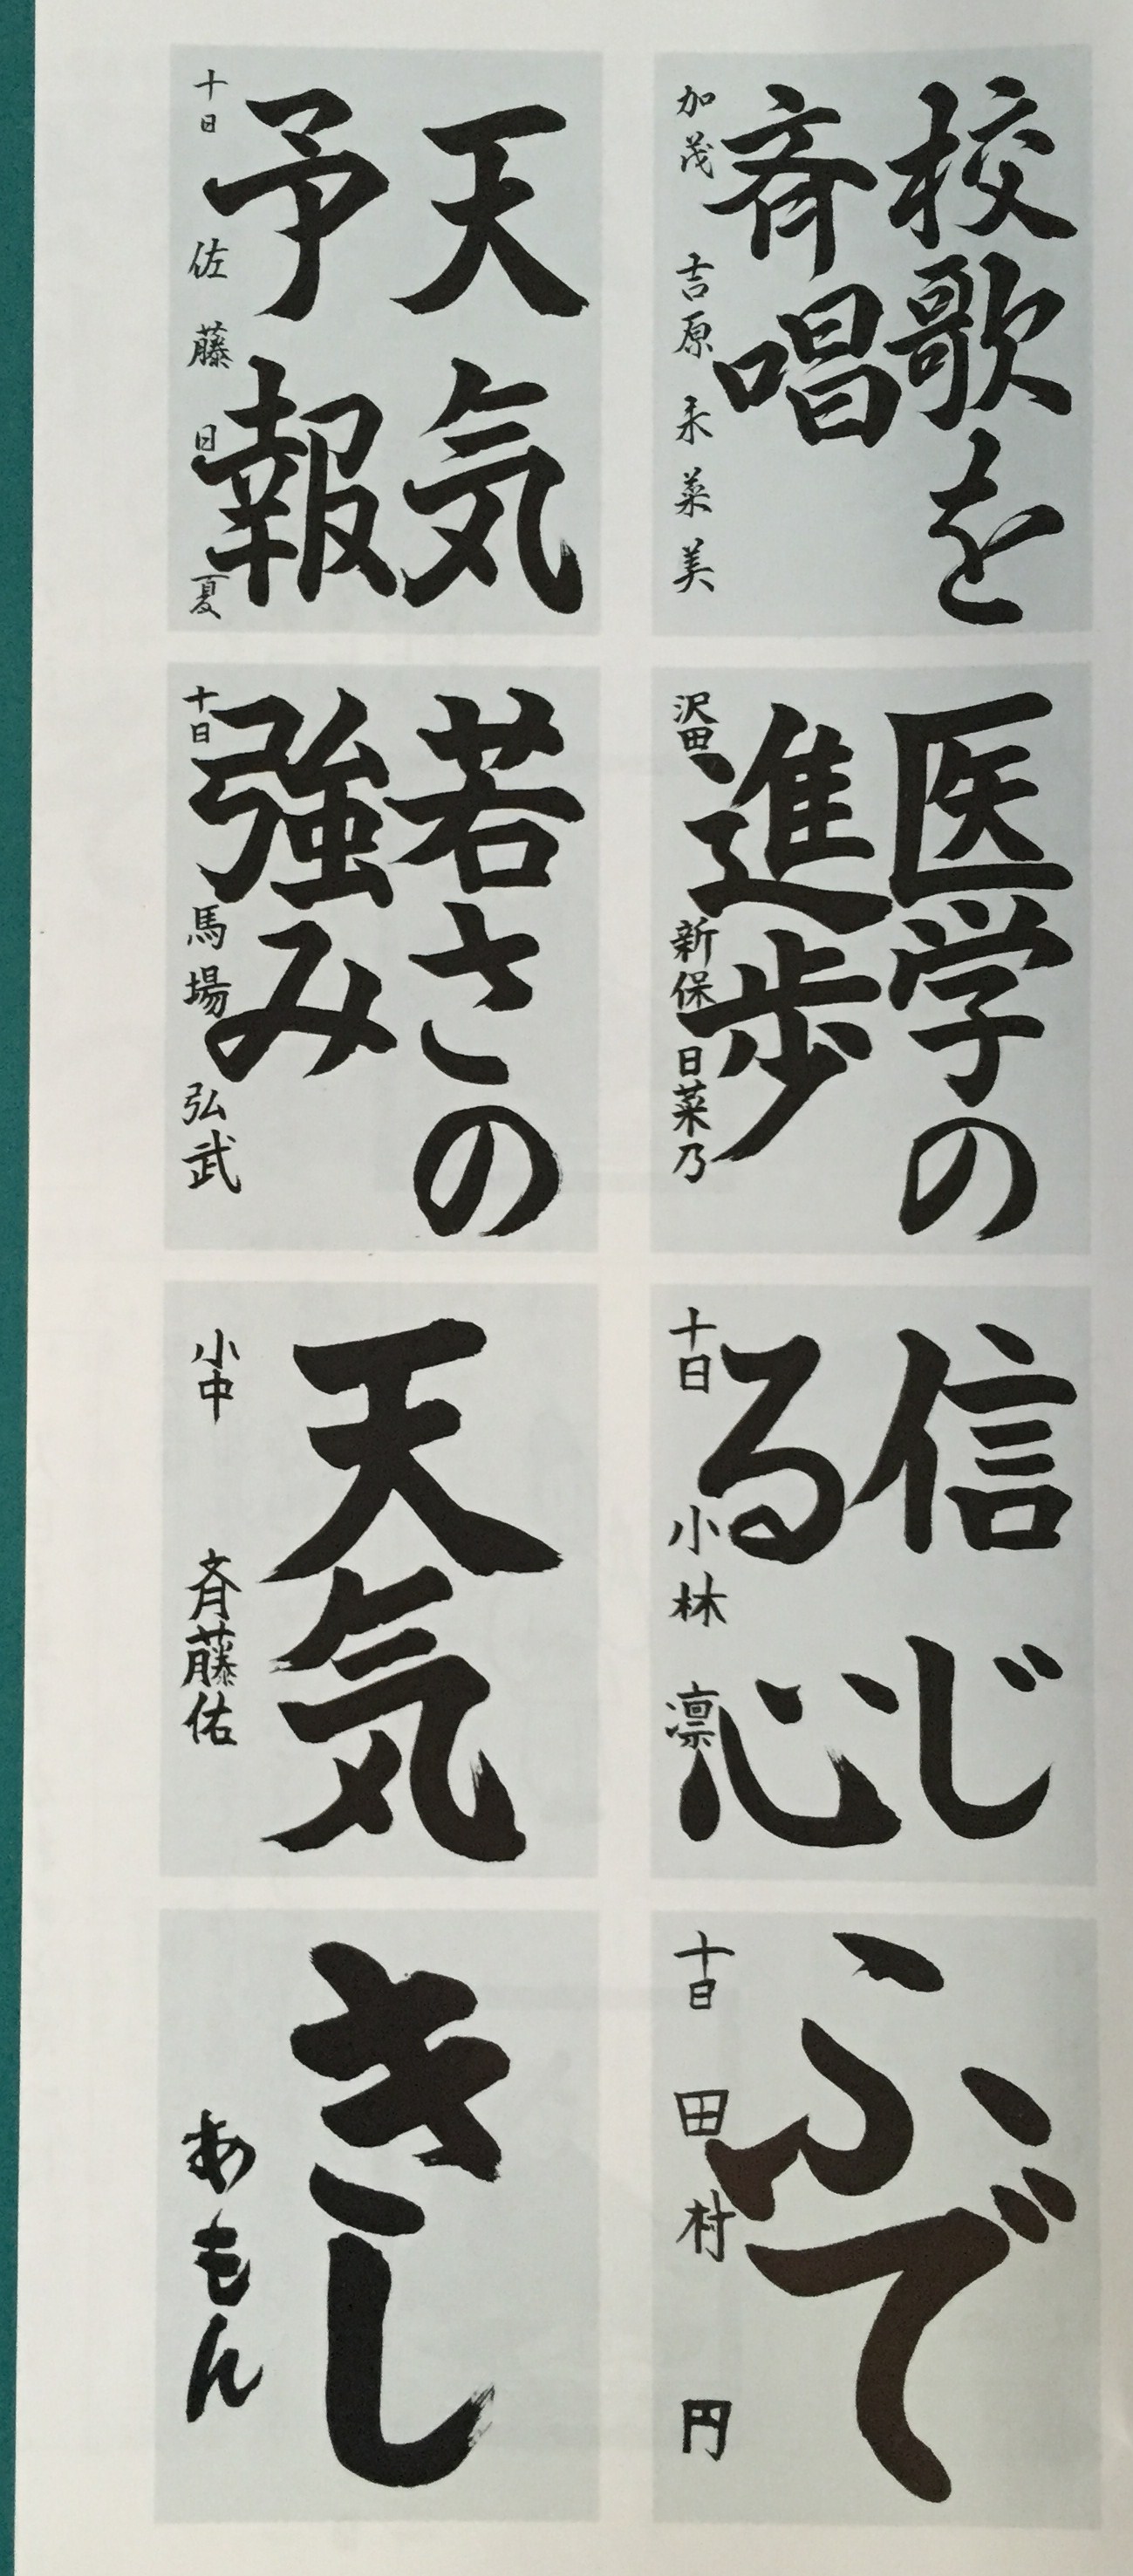 校歌を
斉唱
加茂 吉原未菜美
医学の
進歩
沢田 新保日菜乃
信じ
る心
十日 小林凛
ふで
十日 田村円
天気
予報
十日 佐藤日夏
若さの
強み
十日 馬場弘武
天気
小中 斉藤佑
きし
あもん